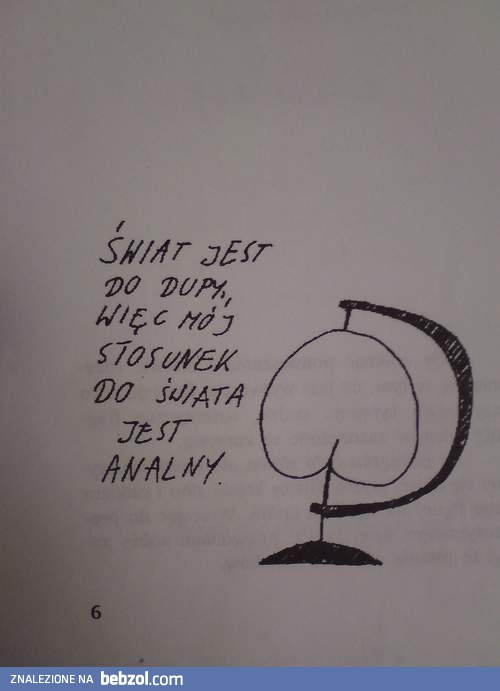 ŚWIAT JEST
DO DUPY,
WIĘC MÓJ
STOSUNEK
DO ŚWIATA
JEST
ANALNY.
6
ZNALEZIONE NA bebzol.com